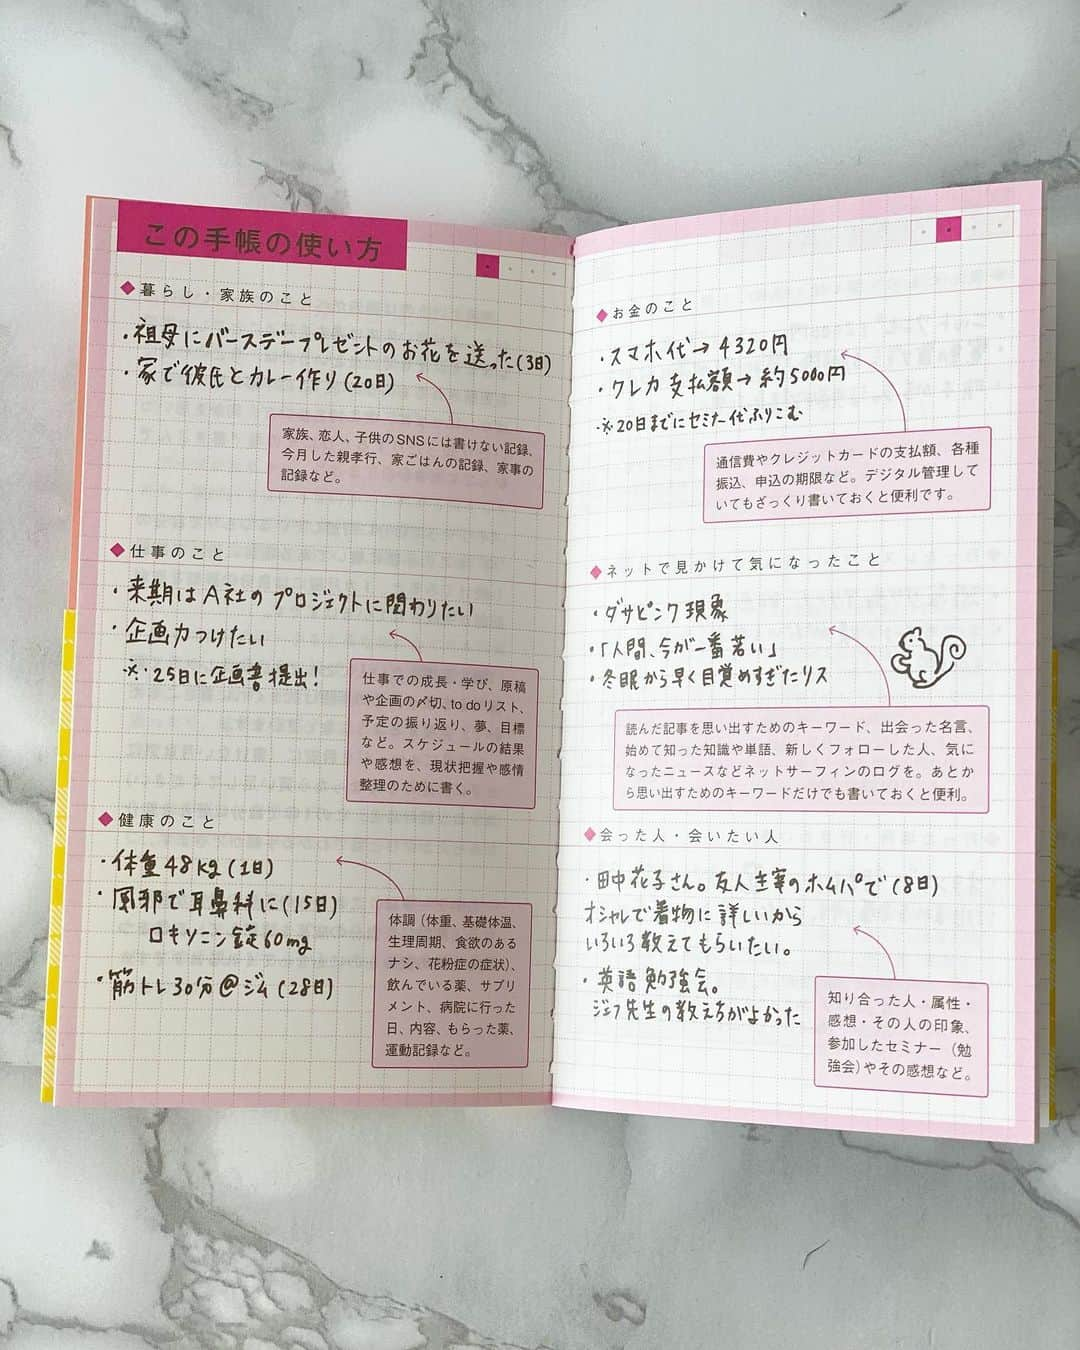 この手帳の使い方
◆暮らし・家族のこと
・祖母にバースデープレゼントのお花を送った(3日)
・家で彼氏とカレー作り(20日)
家族、恋人、子供のSNSには書けない記録、
今月した親孝行、家ごはんの記録、家事の
記録など。
◆仕事のこと
・来期はA社のプロジェクトに関わりたい
・企画力つけたい
※・25日に企画書提出！
仕事での成長・学び、原稿
や企画の〆切、to doリスト、
予定の振り返り、夢、目標
など。スケジュールの結果
や感想を、現状把握や感情
整理のために書く。
◆健康のこと
・体重48kg(1日)
・風邪で耳鼻科に(15日)
ロキソニン錠60mg
・筋トレ30分@ジム(28日)
体調（体重、基礎体温、
生理周期、食欲のある
ナシ、花粉症の症状）、
飲んでいる薬、サプリ
メント、病院に行った
日、内容、もらった薬、
運動記録など。
◆お金のこと
・スマホ代→4320円
・クレカ支払額→約5000円
※20日までにセミナー代ふりこむ
通信費やクレジットカードの支払額、各種
振込、申込の期限など。デジタル管理して
いてもざっくり書いておくと便利です。
◆ネットで見かけて気になったこと
・ダサピンク現象
・「人間、今が一番若い」
・冬眠から早く目覚めすぎたリス
読んだ記事を思い出すためのキーワード、出会った名言、
始めて知った知識や単語、新しくフォローした人、気に
なったニュースなどネットサーフィンのログを。あとか
ら思い出すためのキーワードだけでも書いておくと便利。
◆会った人・会いたい人
・田中花子さん。友人主宰のホムパで(8日)
オシャレで着物に詳しいから
いろいろ教えてもらいたい。
・英語勉強会。
ジェフ先生の教え方がよかった
知り合った人・属性・
感想・その人の印象、
参加したセミナー（勉
強会）やその感想など。